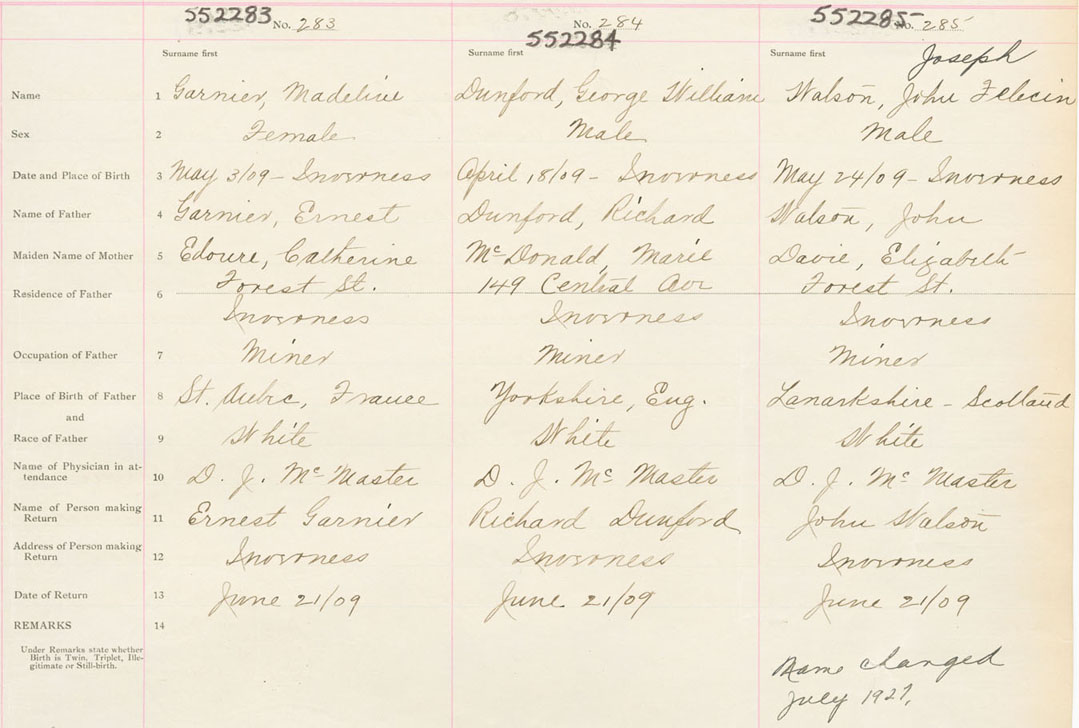 552283 No. 283 No. 284 552285 No. 285
552284
Surname first Surname first Surname first Joseph
Name 1 Garnier, Madeline Dunford, George William Walson, John Felicin
Sex 2 Female Male Male
Date and Place of Birth 3 May 3/09 - Inverness April 18/09 - Inverness May 24/09 - Inverness
Name of Father 4 Garnier, Ernest Dunford, Richard Walson, John
Maiden Name of Mother 5 Edoure, Catherine McDonald, Marie Davie, Elizabeth
Forest St. 149 Central Ave Forest St.
Residence of Father 6
Inverness Inverness Inverness
Occupation of Father 7 Miner Miner Miner
Place of Birth of Father 8 St. Aubre, France Yorkshire, Eng. Lanarkshire - Scotland
and
Race of Father 9 White White White
Name of Physician in at-
tendance 10 D. J. McMaster D. J. McMaster D. J. McMaster
Name of Person making
Return 11 Ernest Garnier Richard Dunford John Walson
Address of Person making
Return 12 Inverness Inverness Inverness
Date of Return 13 June 21/09 June 21/09 June 21/09
REMARKS 14
Under Remarks state whether
Birth is Twin, Triplet, Ille-
gitimate or Still-birth.
Name changed
July 1927.